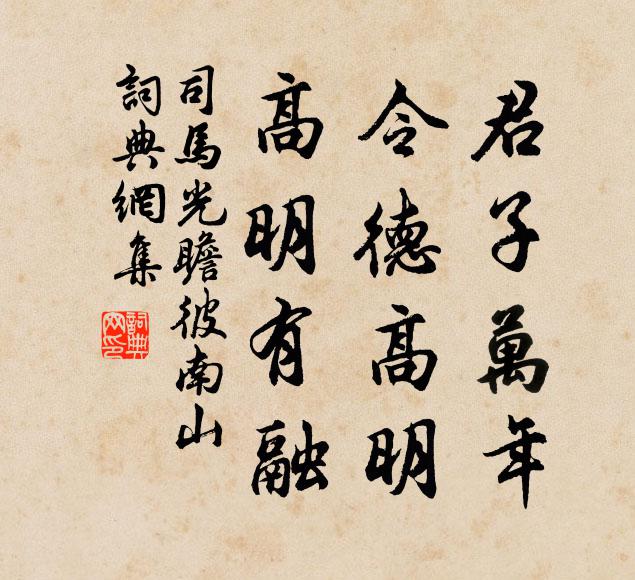 君子萬年
令德高明
高明有融
司馬光瞻彼南山
詞典網集
詞典網印